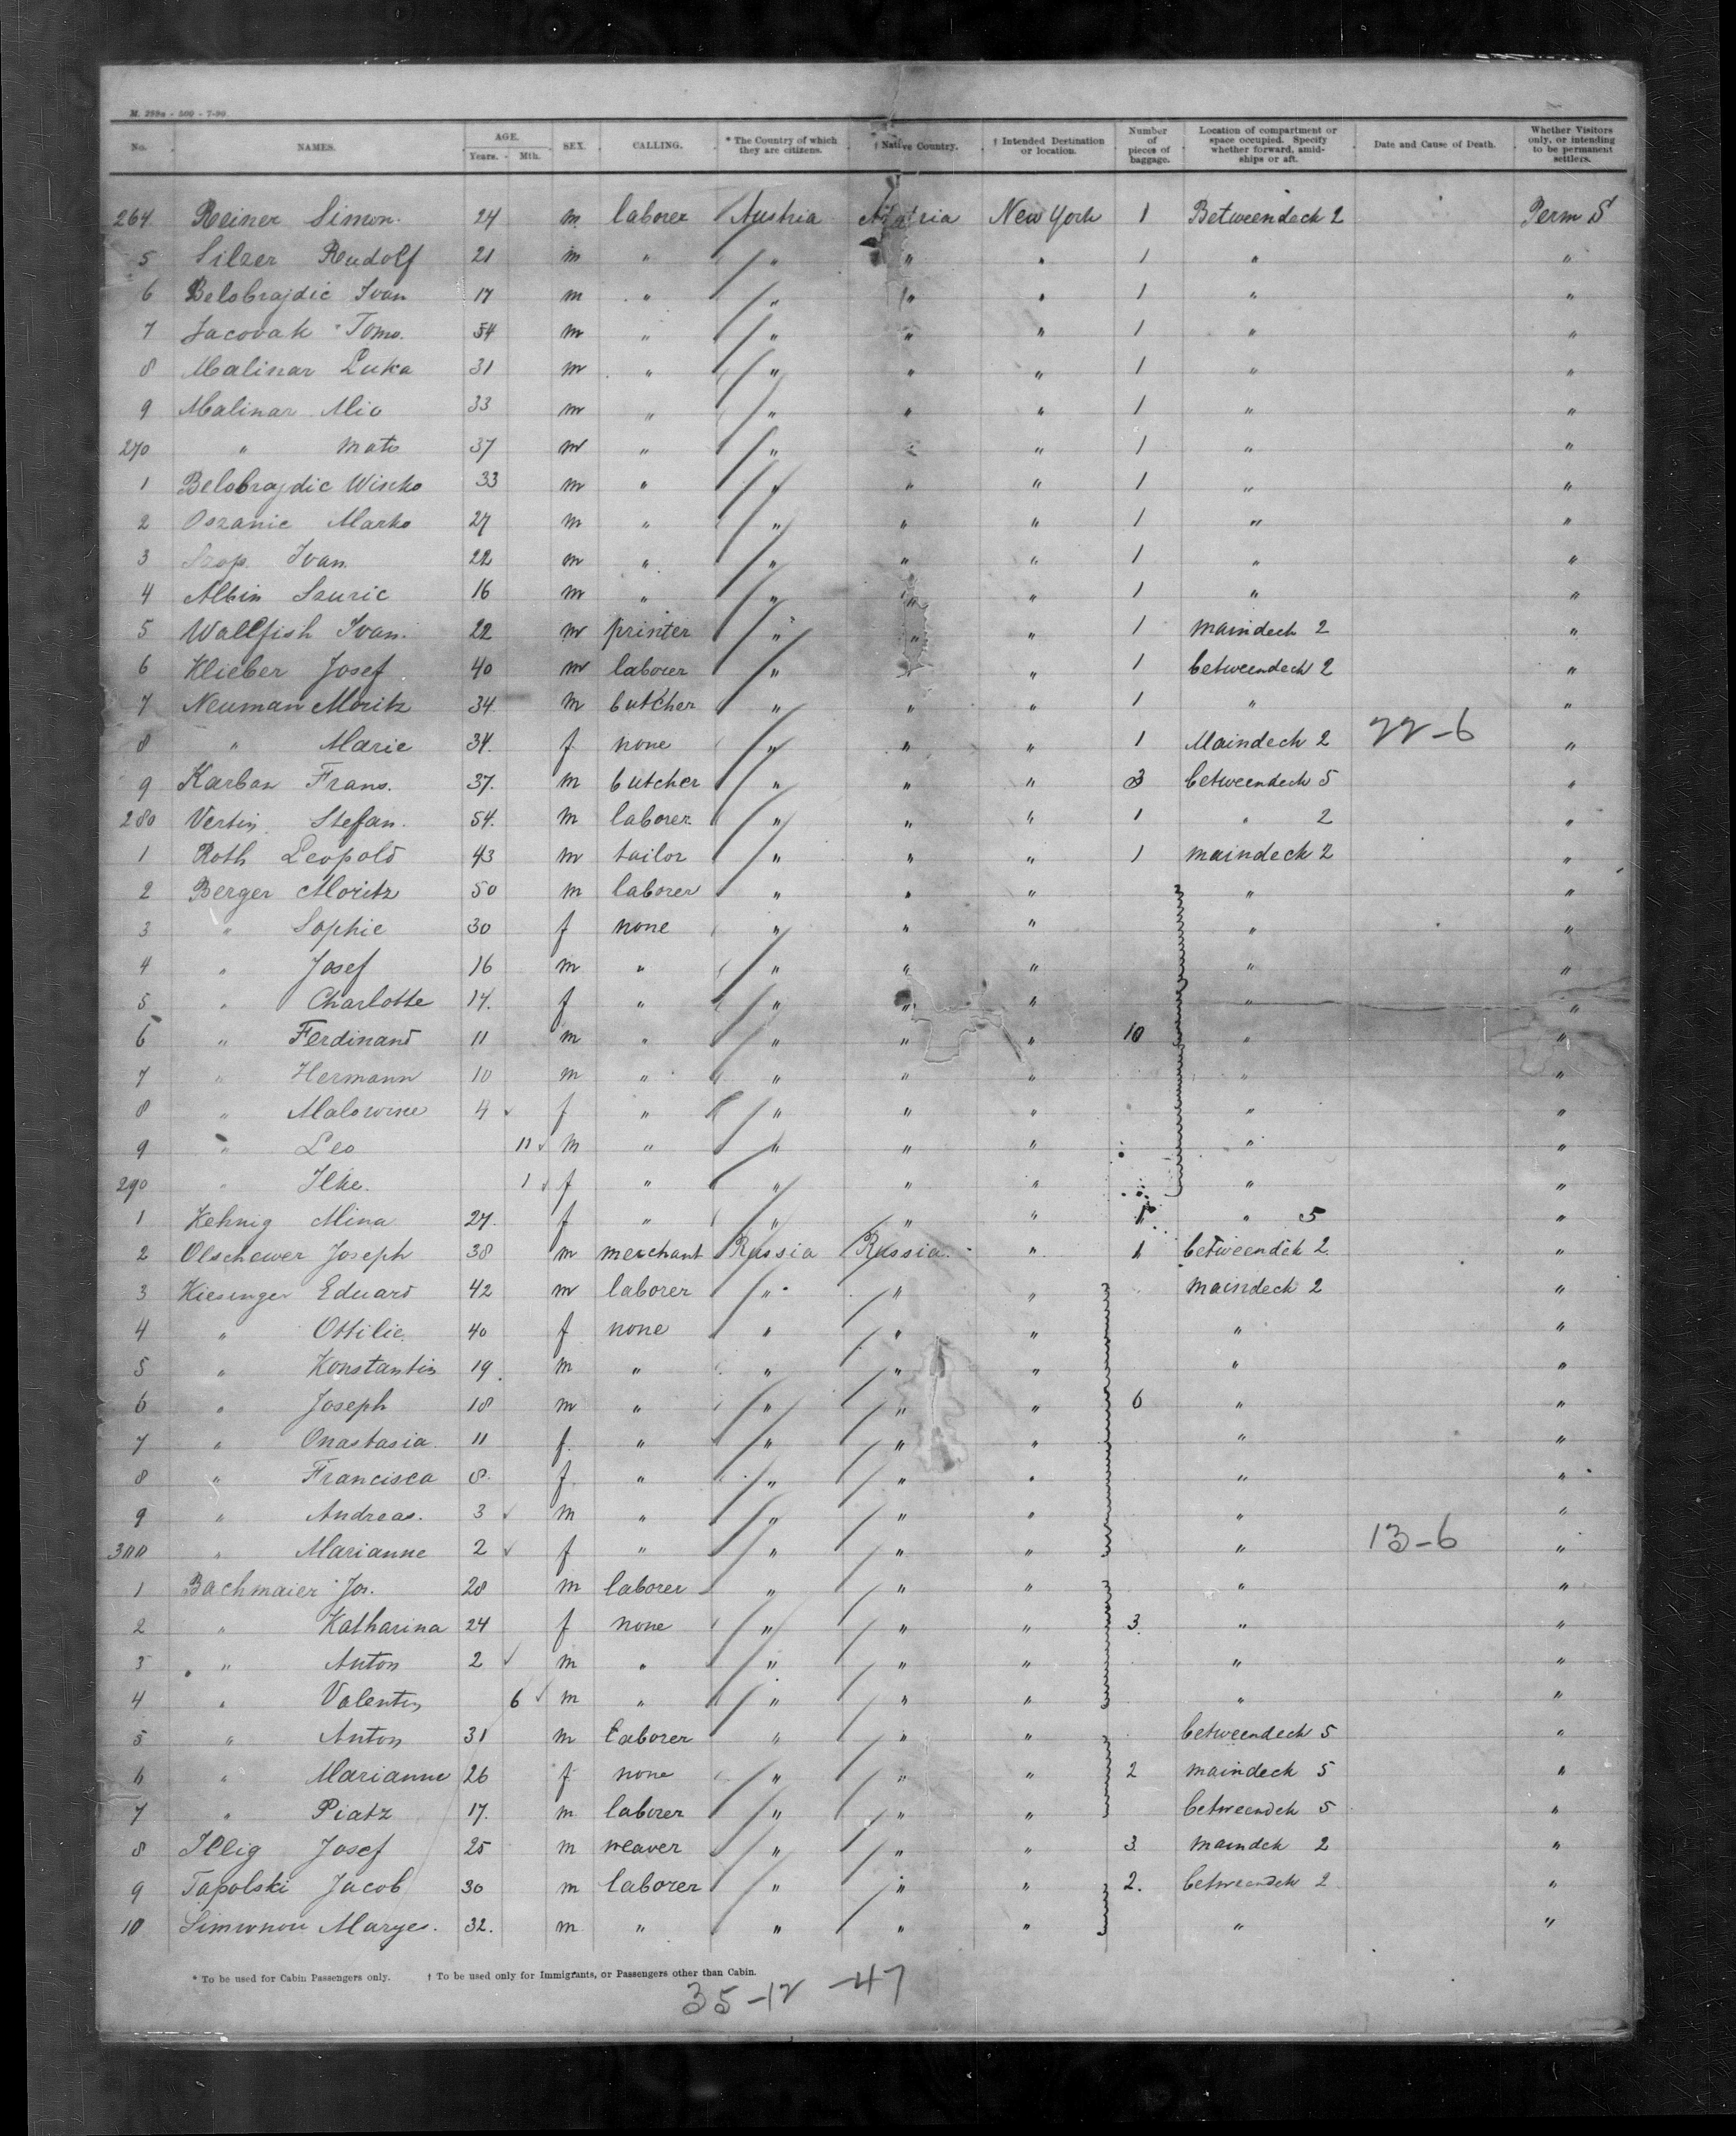 M. 298a - 500 - 7-90
No. NAMES. AGE. Years. Mth. SEX. CALLING. * The Country of which they are citizens. † Native Country. † Intended Destination or location. Number of pieces of baggage. Location of compartment or space occupied. Specify whether forward, amidships or aft. Date and Cause of Death. Whether Visitors only, or intending to be permanent settlers.
264 Reiner Simon. 24 m. laborer Austria Austria New York 1 Betweendeck 2 Perm S
5 Silzer Rudolf 21 m " " " " 1 " "
6 Belobrajdic Ivan 17 m " " " " 1 " "
7 Jacovak Tomo. 54 m " " " " 1 " "
8 Malinar Luka 31 m " " " " 1 " "
9 Malinar Mio 33 m " " " " 1 " "
270 " Mato 37 m " " " " 1 " "
1 Belobrajdic Wincko 33 m " " " " 1 " "
2 Ozanic Marko 27 m " " " " 1 " "
3 Ivan. 22 m " " " " 1 " "
4 Albin Sauric 16 m " " " " 1 " "
5 Wallfish Ivan. 22 m printer " " " 1 maindeck 2 "
6 Klieber Josef 40 m laborer " " " 1 betweendeck 2 "
7 Neuman Moritz 34 m butcher " " " 1 " "
8 " Marie 34. f. none " " " 1 Maindeck 2 22-6 "
9 Karban Frans. 37. m butcher " " " 3 betweendeck 5 "
280 Vertin Stefan. 54. m laborer " " " 1 " 2 "
1 Roth Leopold 43 m tailor " " " 1 maindeck 2 "
2 Berger Moritz 50 m laborer " " " " "
3 " Sophie 30 f none " " " " "
4 " Josef 16 m " " " " " "
5 " Charlotte 14. f " " " " " "
6 " Ferdinand 11 m " " " " 10 " "
7 " Hermann 10 m " " " " " "
8 " Malowine 4 f " " " " " "
9 " Leo 11 m " " " " " "
290 " Ilke. 1 f " " " " " "
1 Kehnig Mina 27. f " " " " 1 " 5 "
2 Olschewer Joseph 38 m merchant Russia Russia " 1 betweendek 2 "
3 Kiesinger Eduard 42 m laborer " " " maindeck 2 "
4 " Ottilie. 40 f none " " " " "
5 " Konstantin 19. m " " " " " "
6 " Joseph 18 m " " " " 6 " "
7 " Onastasia. 11 f. " " " " " "
8 " Francisca 8. f. " " " " " "
9 " Andreas. 3 m " " " " " "
300 " Marianne 2 f " " " " " 13-6 "
1 Bachmaier Jos. 28 m laborer " " " " "
2 " Katharina 24 f none " " " 3. " "
3 " Anton 2 m " " " " " "
4 " Valentin 6 m " " " " " "
5 " Anton 31 m laborer " " " betweendeck 5 "
6 " Marianne 26 f none " " " 2 maindeck 5 "
7 " Piatz 17. m laborer " " " betweendek 5 "
8 Illig Josef 25 m weaver " " " 3 maindek 2 "
9 Tapolski Jacob 30 m laborer " " " 2. betweendek 2 "
10 Maryes. 32. m " " " " " "
* To be used for Cabin Passengers only. † To be used only for Immigrants, or Passengers other than Cabin.
35-12 -47